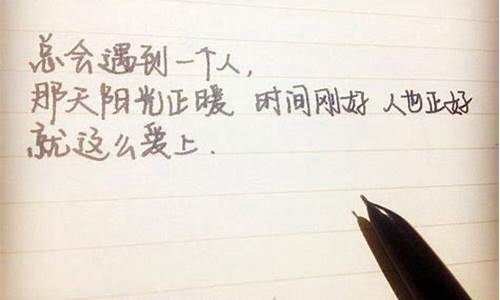 总会遇到一个人,
那天阳光正暖 时间刚好 人也正好
就这么爱上.